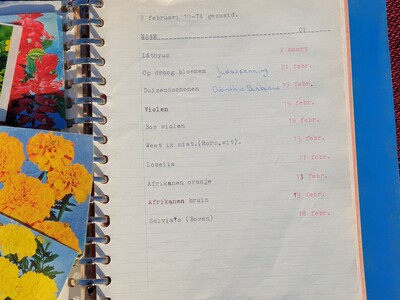 2 februari 19-78 gezaaid.
NAAM OP
Lathyus 2 maart
Op droog bloemen Judaspenning 21 febr.
Duizendschonen Dianthus Barbatus 19 febr.
Violen 19 febr.
Bos violen 16 febr.
Weet ik niet.(Boro,wit). 14 febr.
Lobelia 17 febr.
Afrikanen oranje 11 febr.
Afrikanen bruin 13 febr.
Salvia's (Boven) 18 febr.